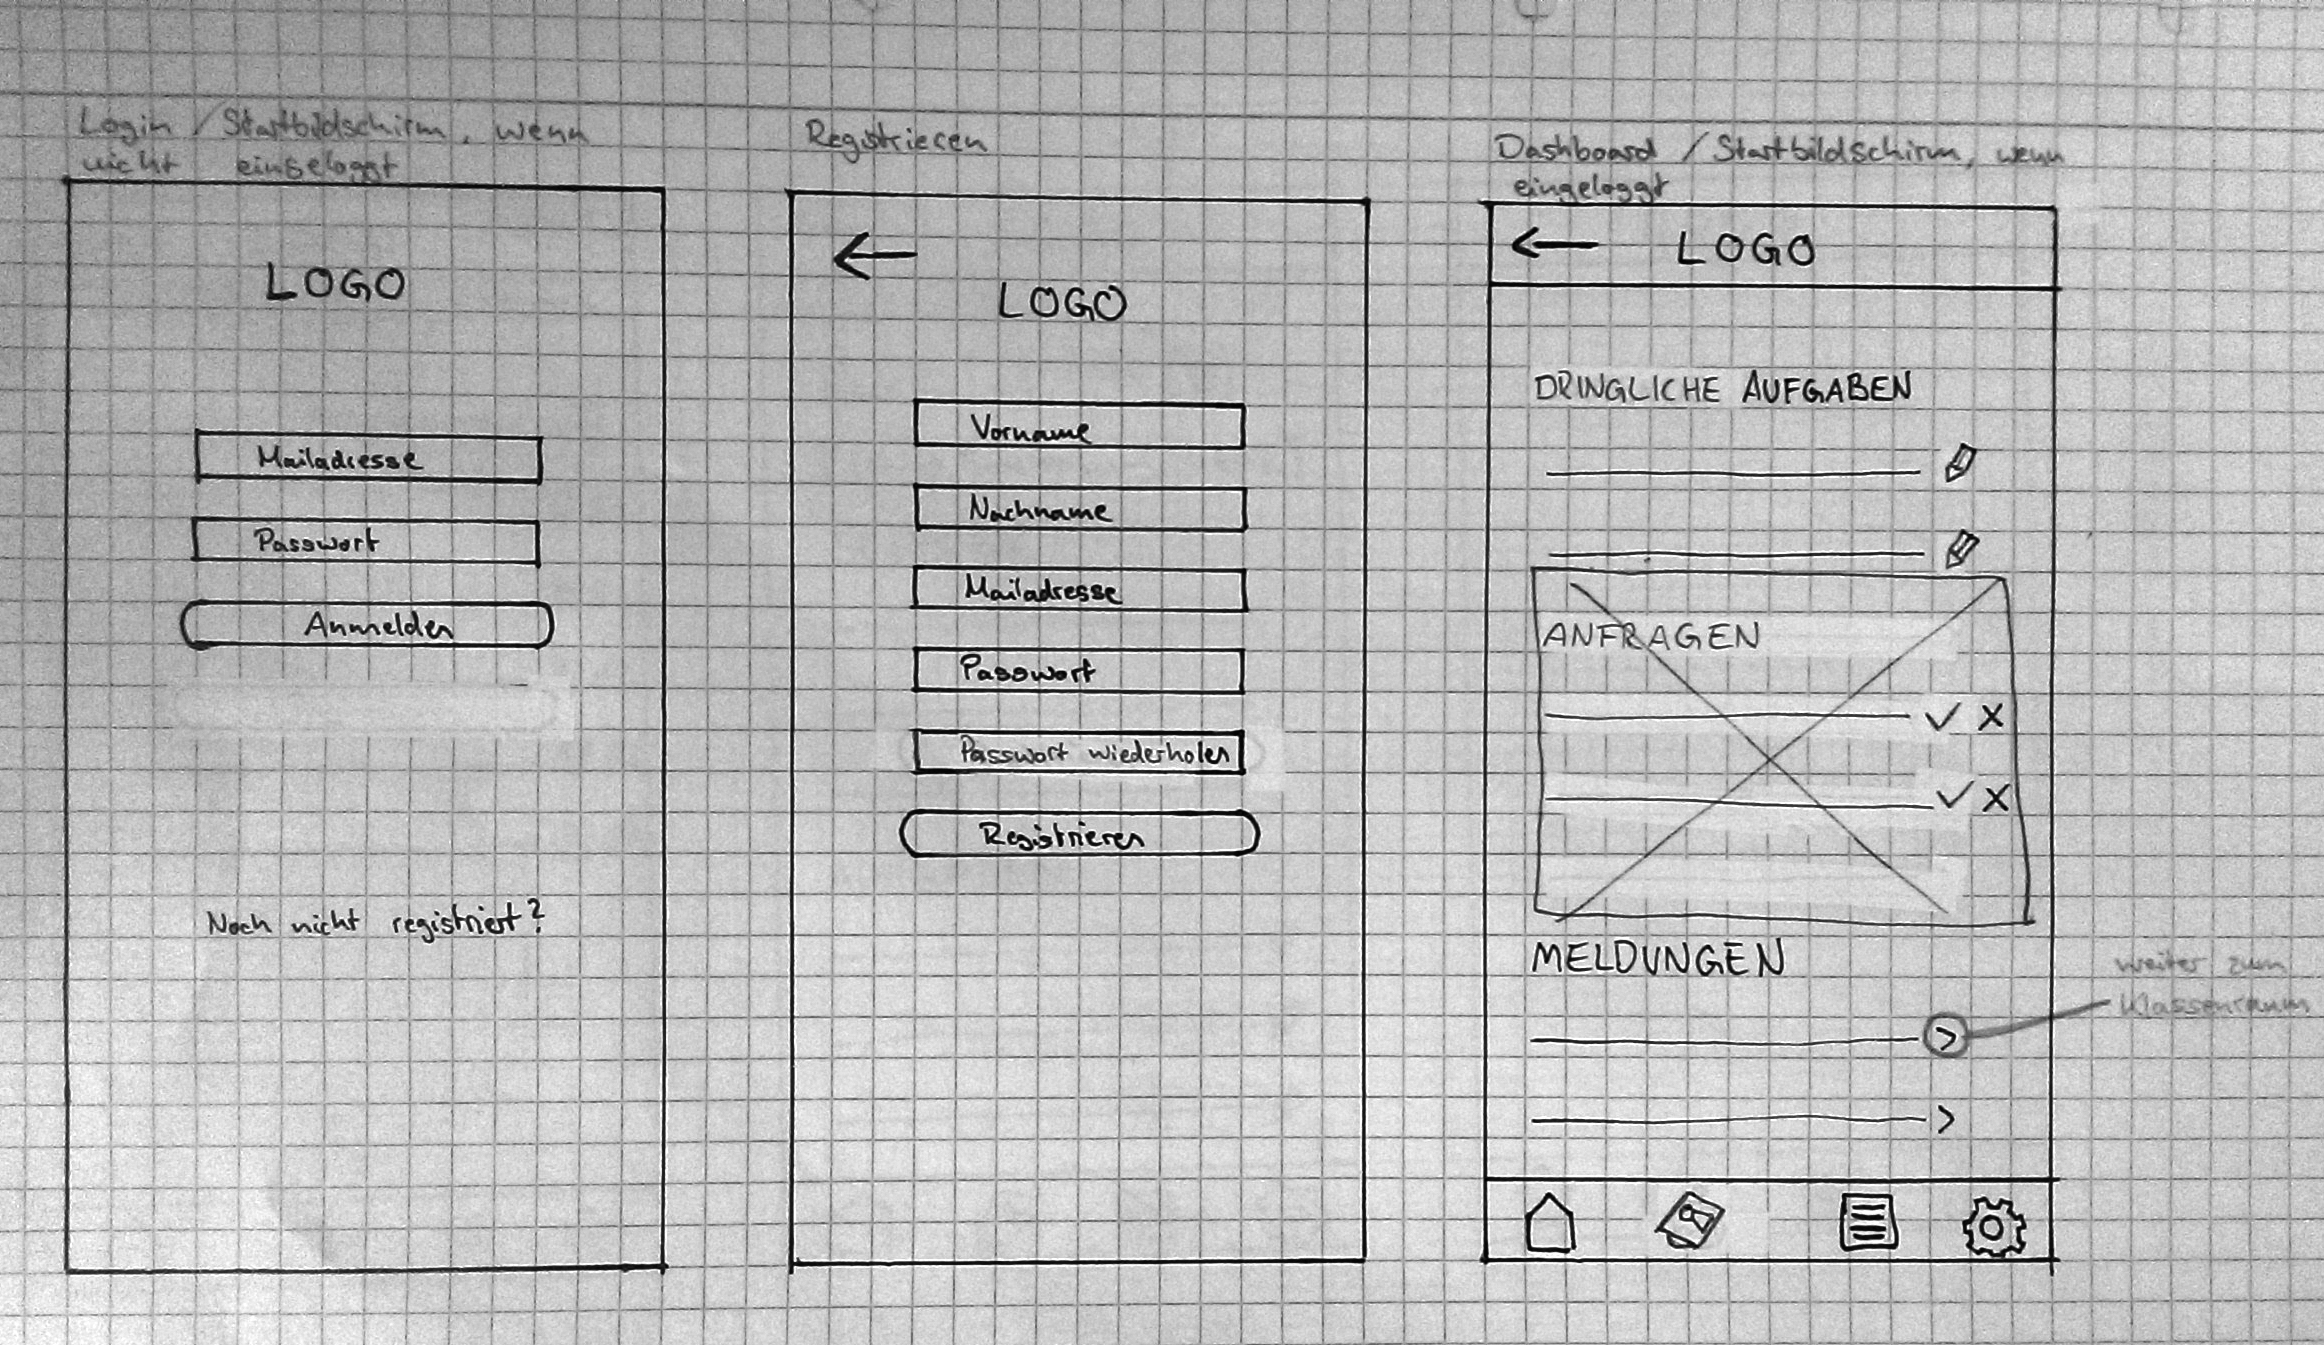 Login / Startbildschirm, wenn
nicht eingeloggt
LOGO
Mailadresse
Passwort
Anmelden
Noch nicht registriert?
Registrieren
LOGO
Vorname
Nachname
Mailadresse
Passwort
Passwort wiederholen
Registrieren
Dashboard / Startbildschirm, wenn
eingeloggt
LOGO
DRINGLICHE AUFGABEN
ANFRAGEN
MELDUNGEN
weiter zum
Klassenraum